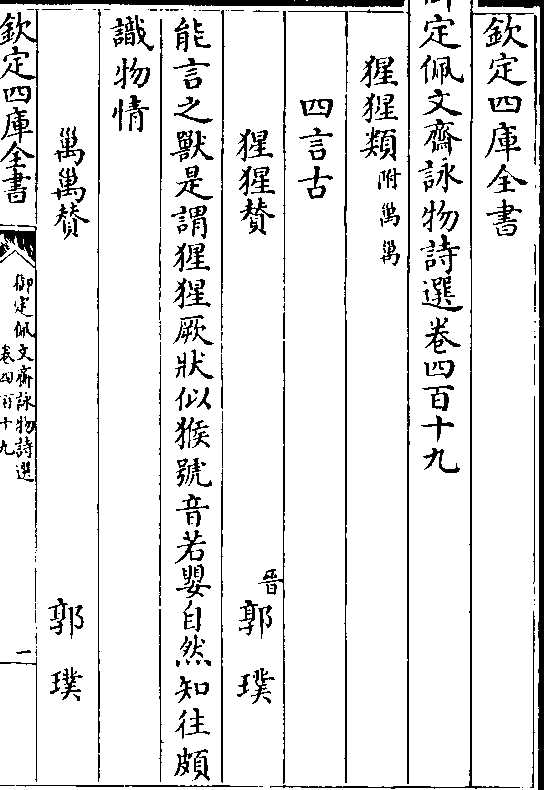 欽定四庫全書
御定佩文齋詠物詩選卷四百十九
猩猩類附𥜿𥜿
四言古
猩猩贊 晉郭璞
能言之獸是謂猩猩厥狀似猴號音若嬰自然知往頗
識物情
𥜿𥜿贊 郭璞
欽定四庫全書
御定佩文齋詠物詩選
卷四百十九
一